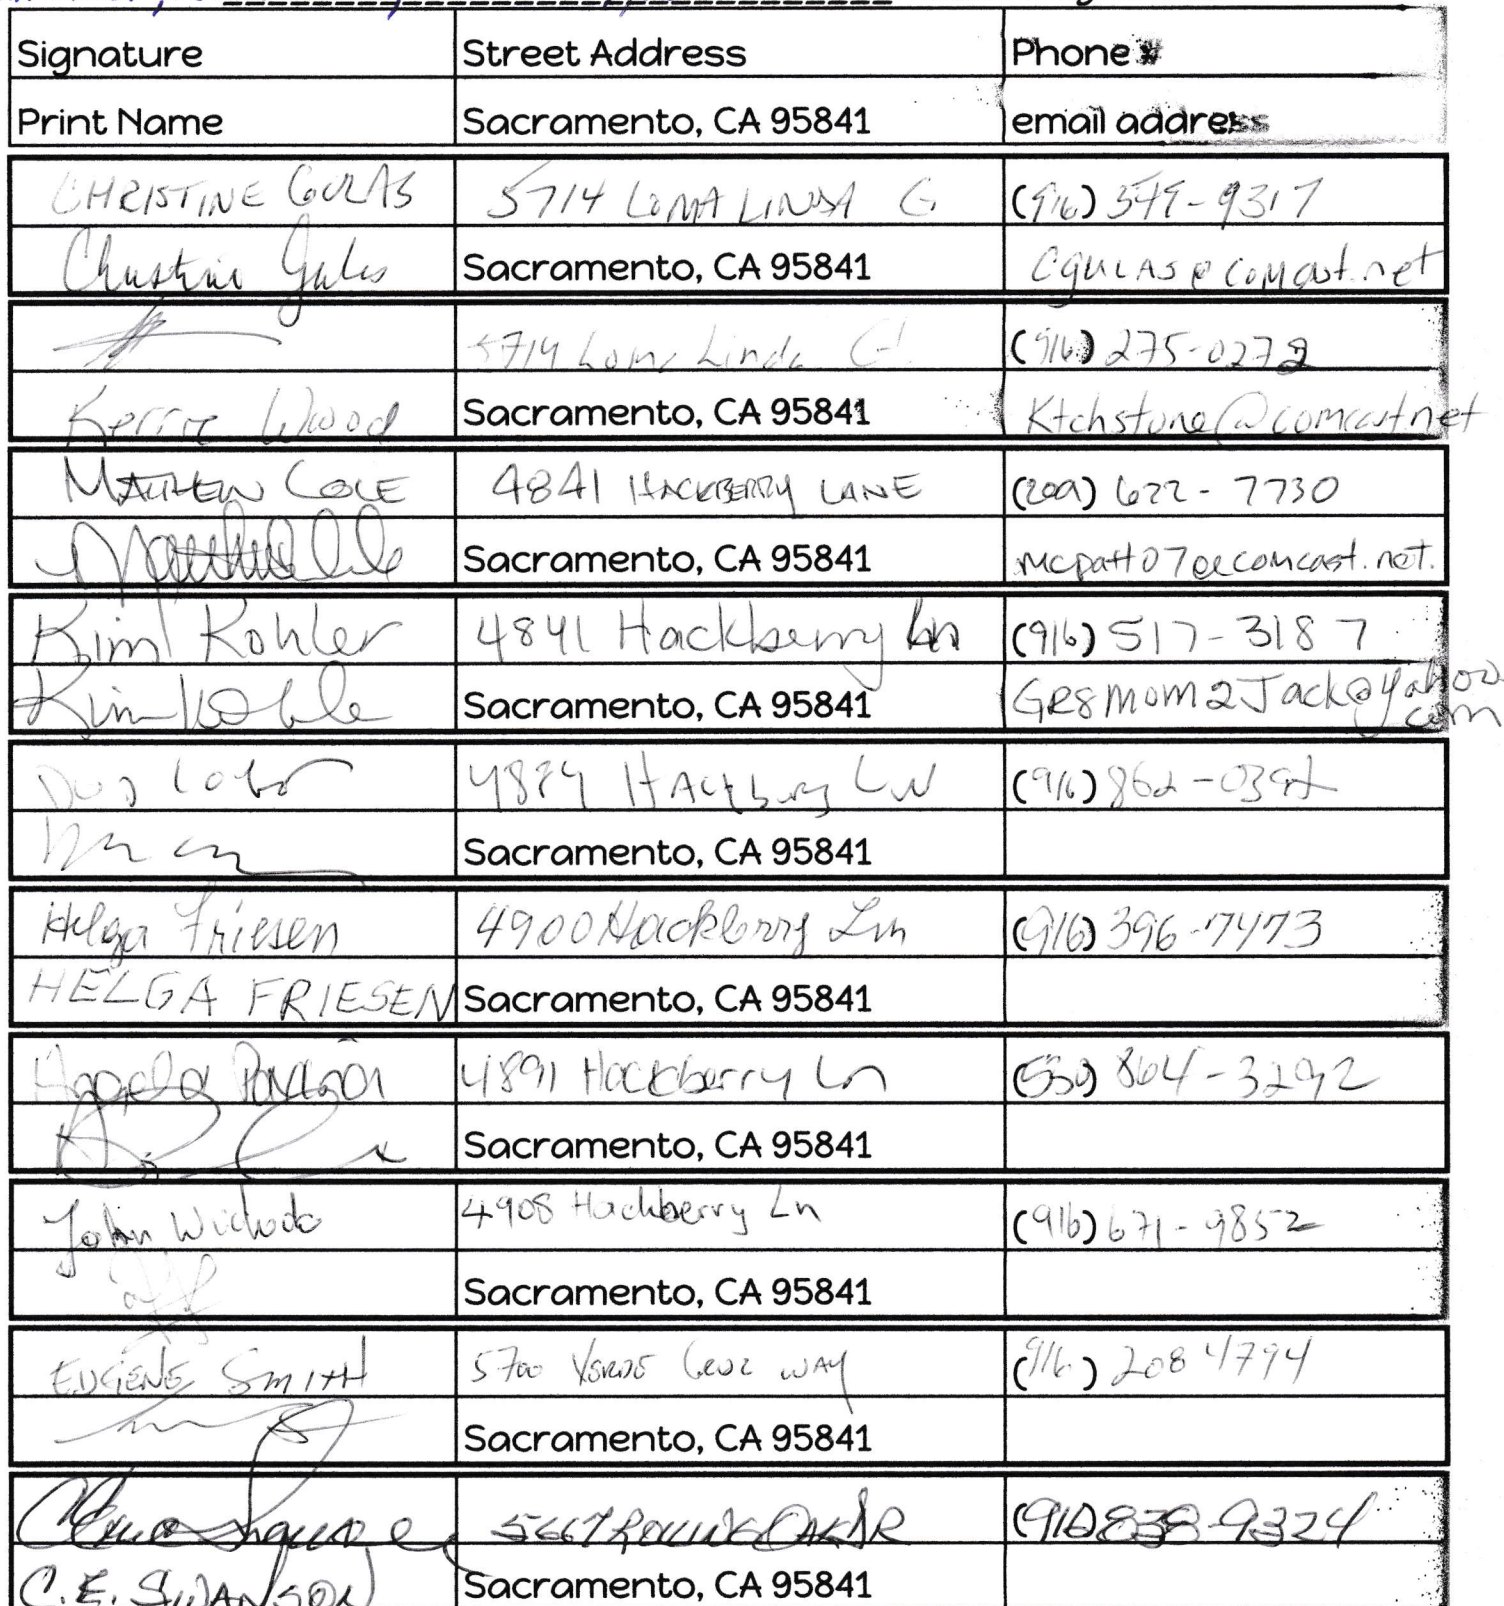 Signature Street Address Phone #
Print Name Sacramento, CA 95841 email address
CHRISTINE GULAS 5714 LOMA LINDA Ct (916) 549-9317
Christine Gulas Sacramento, CA 95841 cgulas@comcast.net
5714 Loma Linda Ct. (916) 275-0272
Kerrie Wood Sacramento, CA 95841 Ktchstone@comcast.net
MATTHEW COLE 4841 HACKBERRY LANE (209) 622-7730
Sacramento, CA 95841 mcpatt07@comcast.net.
Kim Kohler 4841 Hackberry Ln (916) 517-3187
Kim Kohler Sacramento, CA 95841 GR8mom2Jack@yahoo.com
Hackberry LN (916)
Sacramento, CA 95841
Helga Friesen 4900 Hackberry Ln (916) 396-7473
HELGA FRIESEN Sacramento, CA 95841
Angela 4891 Hackberry Ln (530) 864-3292
Sacramento, CA 95841
John 4908 Hackberry Ln (916) 671-9852
Sacramento, CA 95841
EUGENE SMITH 5700 VERDE CRUZ WAY (916) 208 4794
Sacramento, CA 95841
5667 ROLLING OAK DR (916) 838-9324
C.E. SWANSON Sacramento, CA 95841